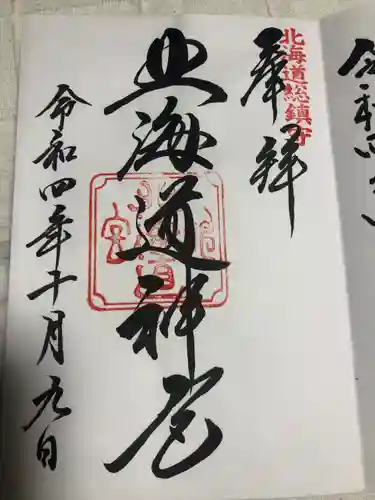 北海道総鎮守
奉拝
北海道神宮
令和四年十月九日